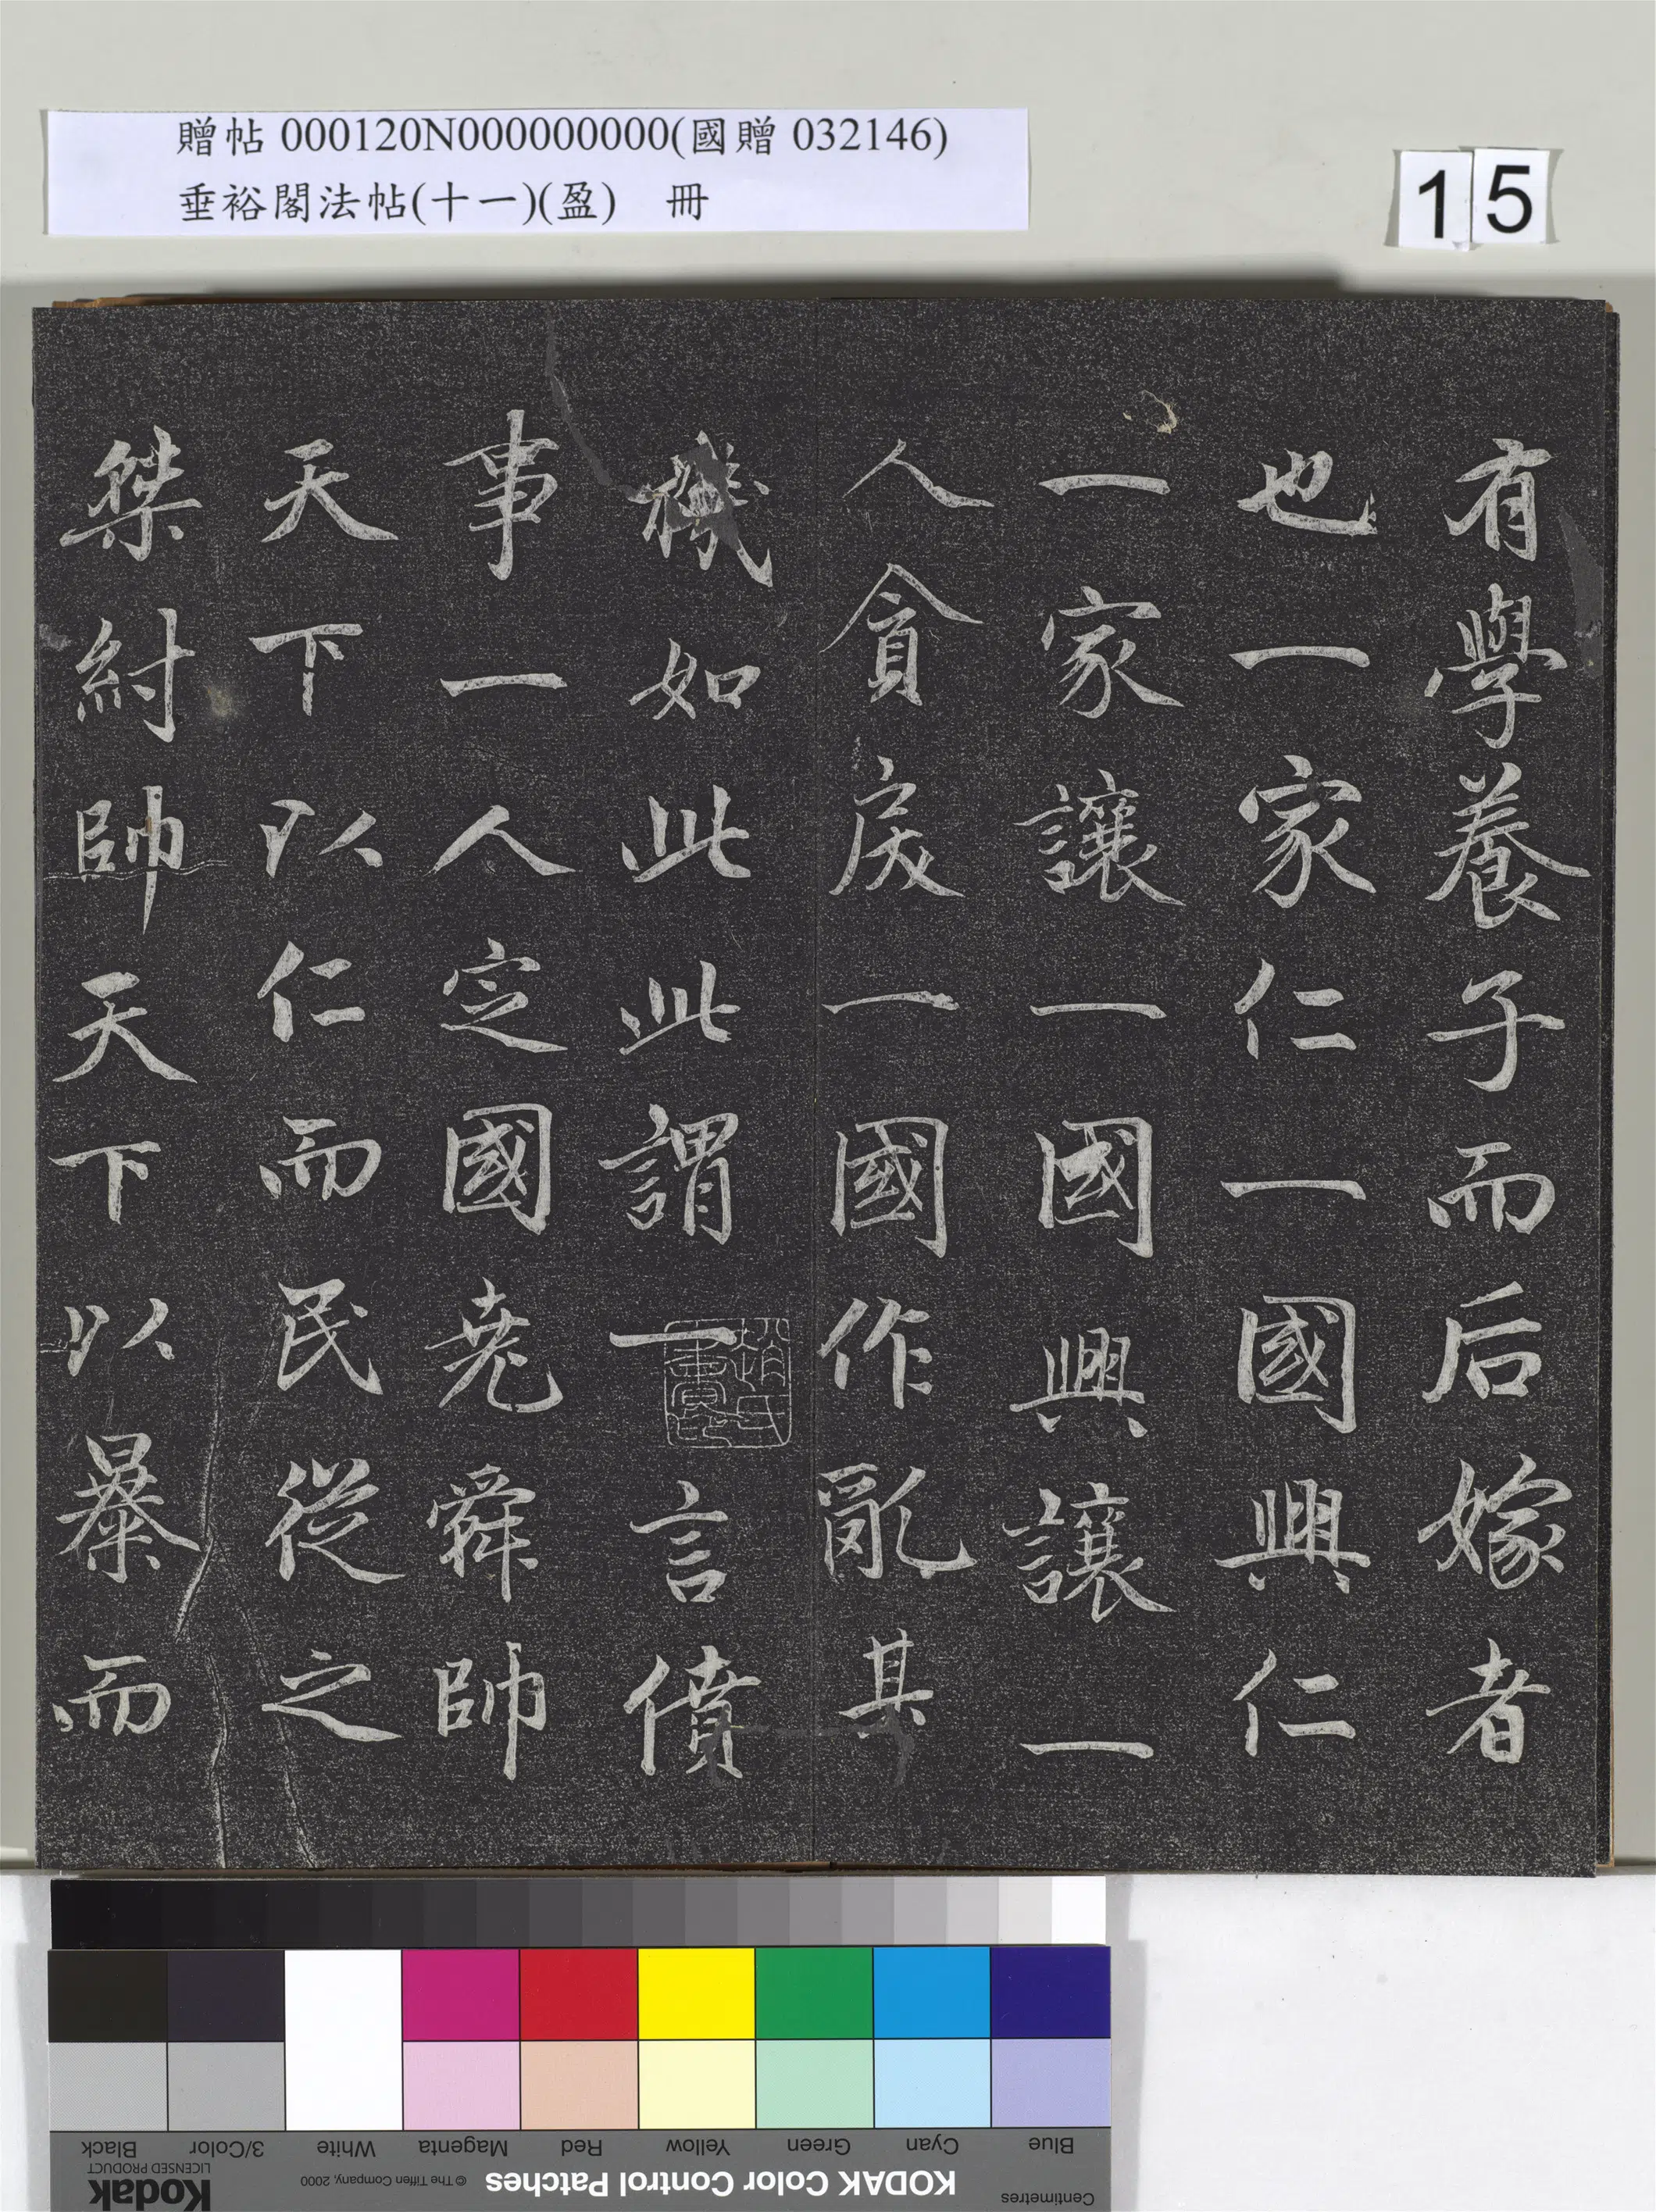 贈帖 000120N000000000(國贈 032146)
垂裕閣法帖(十一)(盈) 冊
15
有學養子而后嫁者
也一家仁一國興仁
一家讓一國興讓一
人貪戾一國作亂其
機如此此謂一言僨
事一人定國堯舜帥
天下以仁而民從之
桀紂帥天下以暴而
Blue
Cyan
Green
Yellow
Red
Magenta
White
3/Color
Black
Centimetres
KODAK Color Control Patches
© The Tiffen Company, 2000
Kodak
LICENSED PRODUCT